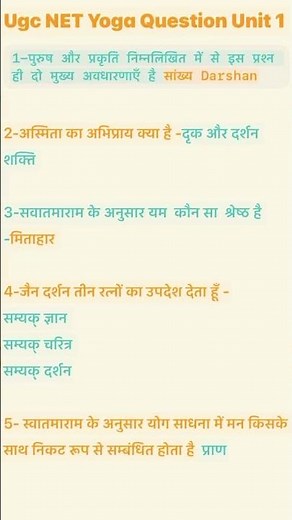 Ugc NET Yoga Question Unit 1
1–पुरुष और प्रकृति निम्नलिखित में से इस प्रश्न
ही दो मुख्य अवधारणाएँ है सांख्य Darshan
2-अस्मिता का अभिप्राय क्या है -दृक और दर्शन
शक्ति
3-सवातमाराम के अनुसार यम कौन सा श्रेष्ठ है
-मिताहार
4-जैन दर्शन तीन रत्नों का उपदेश देता हूँ -
सम्यक् ज्ञान
सम्यक् चरित्र
सम्यक् दर्शन
5- स्वातमाराम के अनुसार योग साधना में मन किसके
साथ निकट रूप से सम्बंधित होता है प्राण